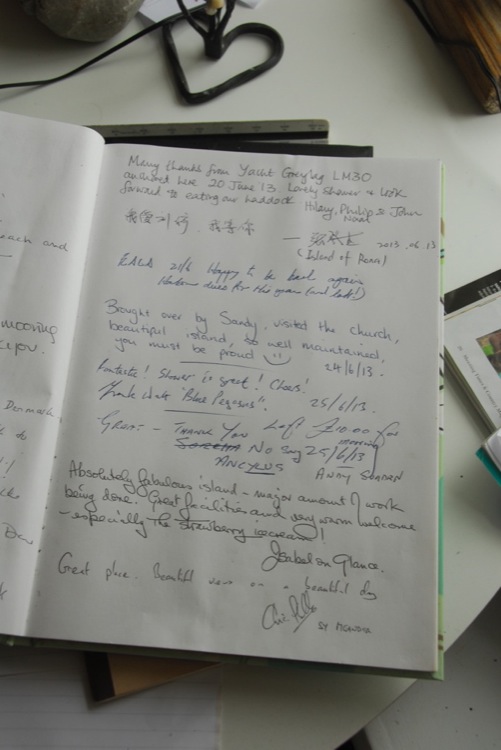 each and
mooring
Denmark
Many thanks from Yacht Greylag LM30
anchored here 20 June 13. Lovely Shower & look
forward to eating our haddock
Hilary, Philip & John
2013.06.13
(Island of Rona)
21/6 Happy to be back again
Harbour dues for this year (and last!)
Brought over by Sandy, visited the church,
beautiful island, so well maintained,
you must be proud
24/6/13.
Fantastic! Shower is great! Cheers!
"Blue Pegasus".
25/6/13.
GREAT - THANK YOU Left £10.00 for
mooring
No 25/6/13
ANCYRUS
Absolutely fabulous island - major amount of work
being done. Great facilities and very warm welcome
- especially the strawberry icecream!
Isabel on Glance.
Great place. Beautiful views on a beautiful day
SY